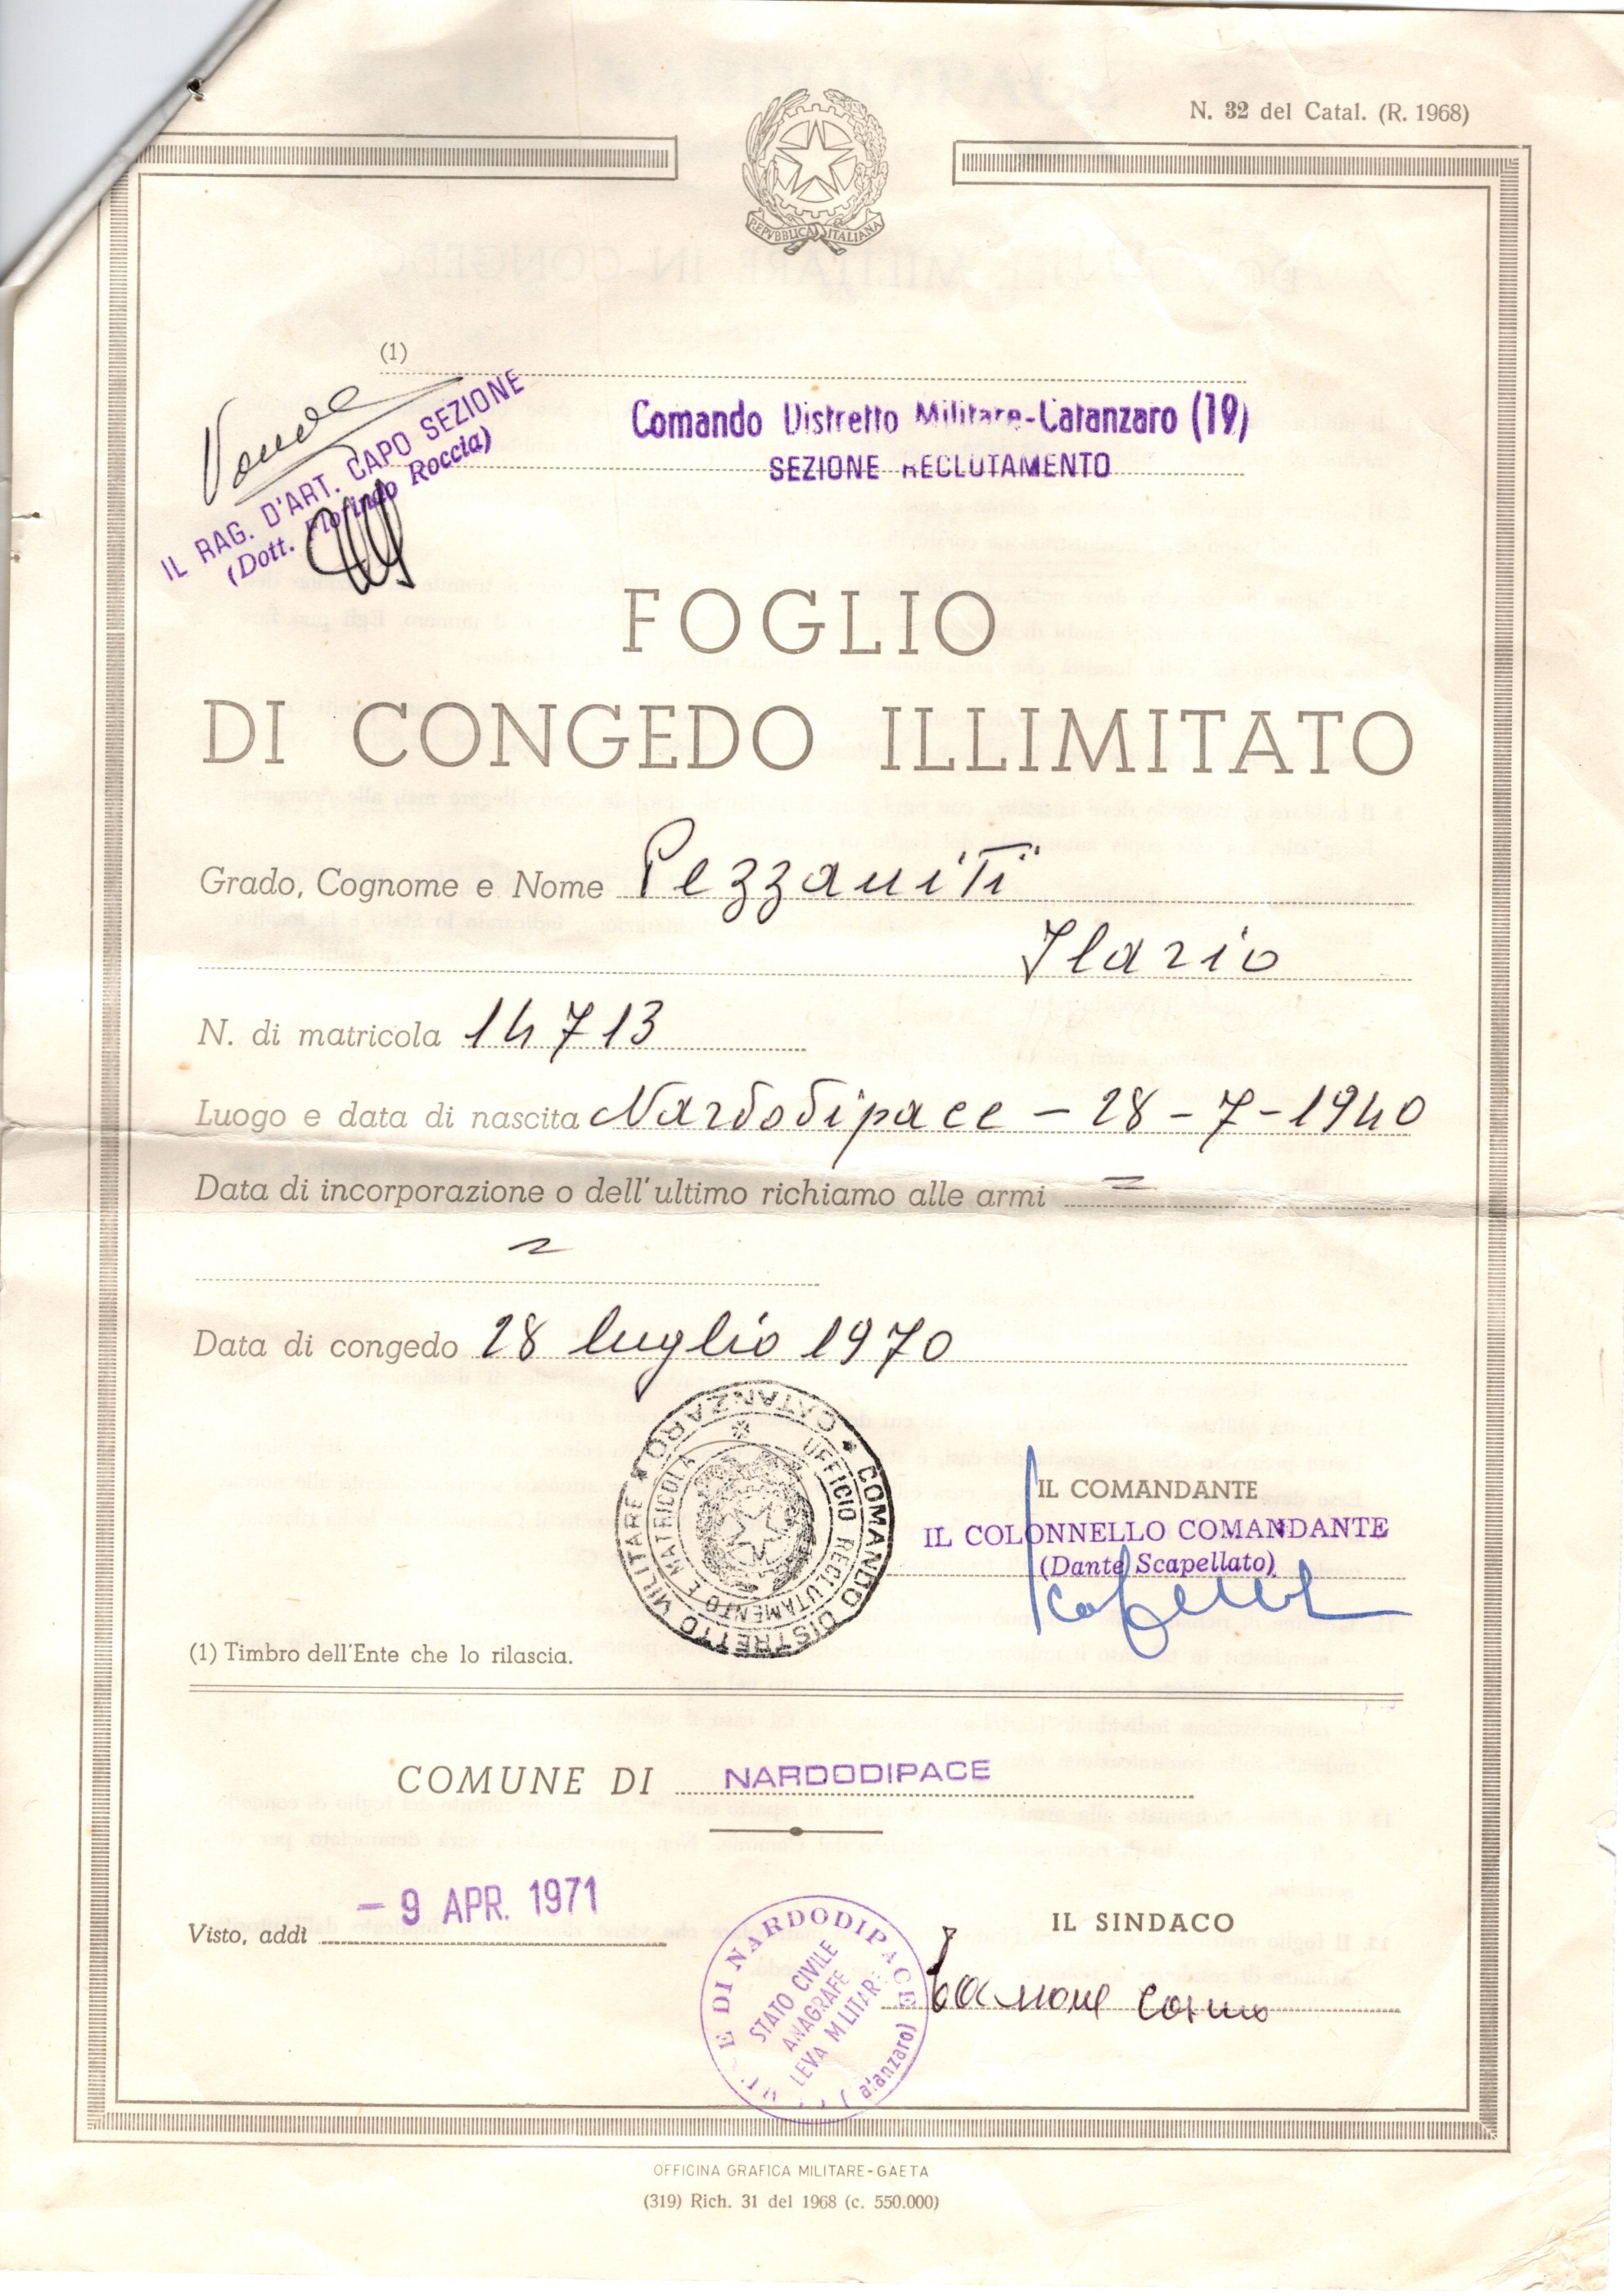 N. 32 del Catal. (R. 1968)
REPVBBLICA ITALIANA
(1)
Comando Distretto Militare-Catanzaro (19)
SEZIONE RECLUTAMENTO
IL RAG. D'ART. CAPO SEZIONE
(Dott. Florindo Roccia)
FOGLIO
DI CONGEDO ILLIMITATO
Grado, Cognome e Nome Pezzaniti
Ilario
N. di matricola 14713
Luogo e data di nascita Nardodipace - 28-7-1940
Data di incorporazione o dell'ultimo richiamo alle armi =
=
Data di congedo 28 luglio 1970
COMANDO DISTRETTO MILITARE * CATANZARO *
UFFICIO RECLUTAMENTO E MATRICOLA *
IL COMANDANTE
IL COLONNELLO COMANDANTE
(Dante Scapellato)
(1) Timbro dell'Ente che lo rilascia.
COMUNE DI NARDODIPACE
Visto, addì - 9 APR. 1971
IL SINDACO
E DI NARDODIPACE
STATO CIVILE
ANAGRAFE
LEVA MILITARE
OFFICINA GRAFICA MILITARE-GAETA
(319) Rich. 31 del 1968 (c. 550.000)